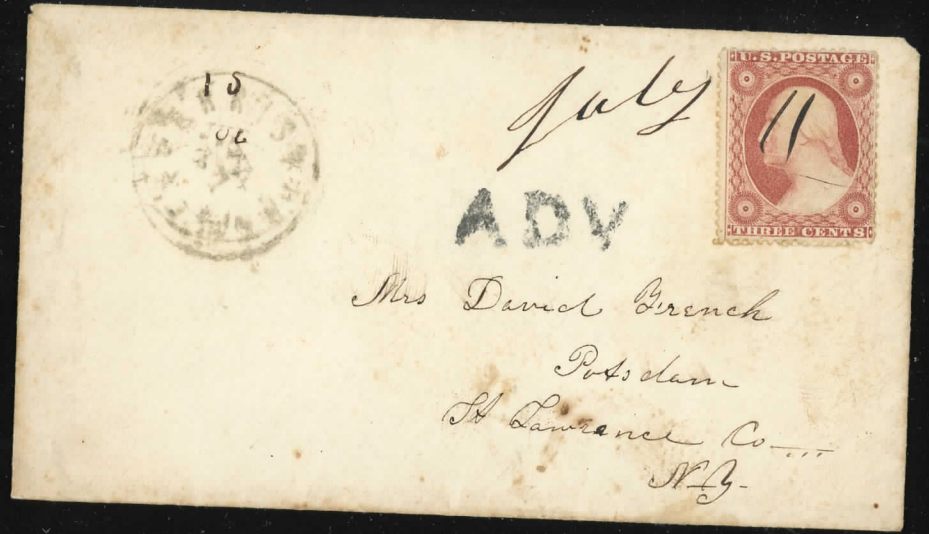 15
July
U.S.POSTAGE
11
THREE CENTS
ADV
Mrs David French
Potsdam
St Lawrence Co
N.Y.